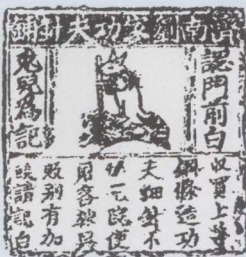 濟南劉家功夫針鋪
認門前白
兔兒為記
收買上等
鋼條造功
夫細針不
使
客轉與
販別有加
饒請記白